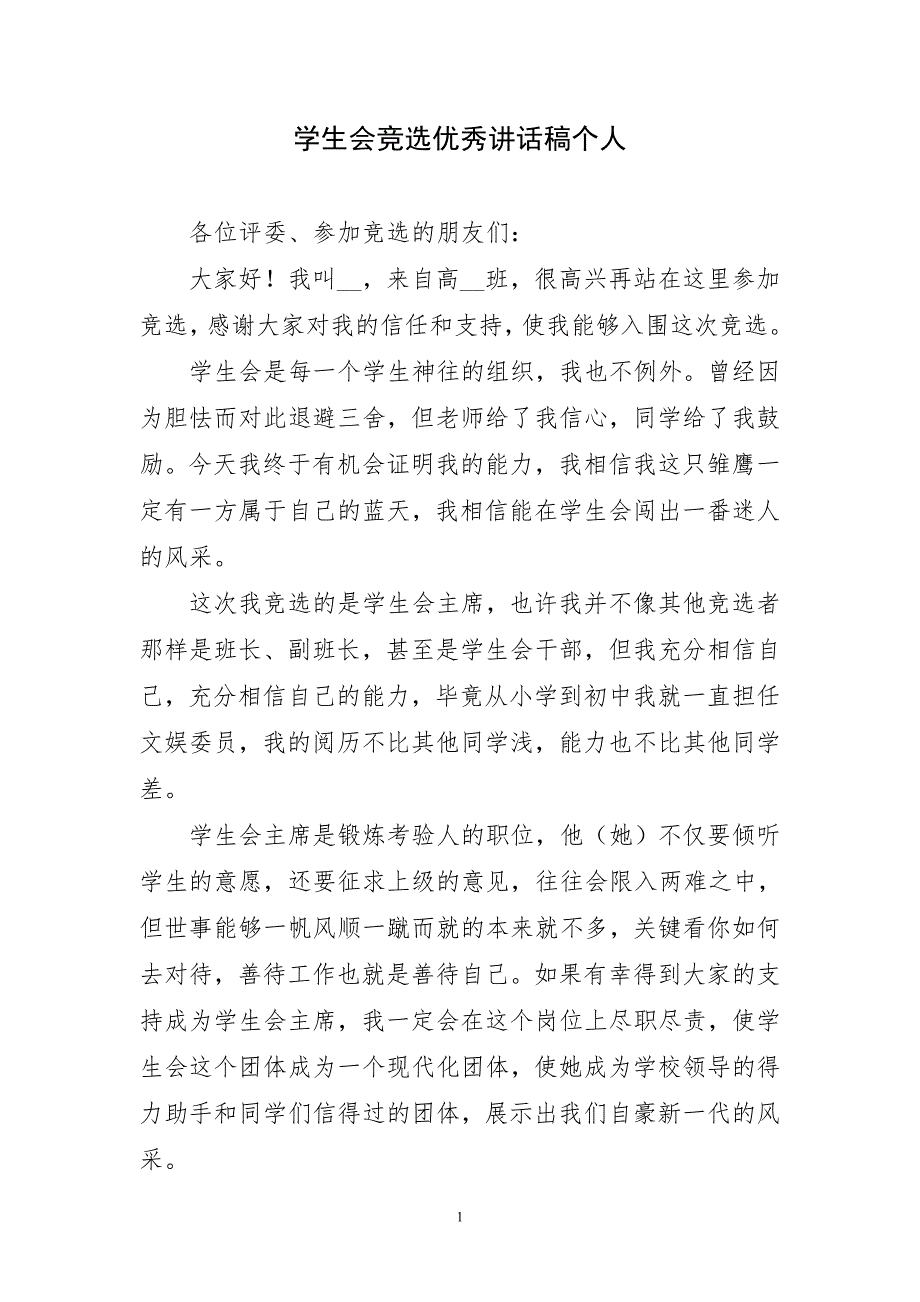 学生会竞选优秀讲话稿个人
各位评委、参加竞选的朋友们：
大家好！我叫__，来自高__班，很高兴再站在这里参加
竞选，感谢大家对我的信任和支持，使我能够入围这次竞选。
学生会是每一个学生神往的组织，我也不例外。曾经因
为胆怯而对此退避三舍，但老师给了我信心，同学给了我鼓
励。今天我终于有机会证明我的能力，我相信我这只雏鹰一
定有一方属于自己的蓝天，我相信能在学生会闯出一番迷人
的风采。
这次我竞选的是学生会主席，也许我并不像其他竞选者
那样是班长、副班长，甚至是学生会干部，但我充分相信自
己，充分相信自己的能力，毕竟从小学到初中我就一直担任
文娱委员，我的阅历不比其他同学浅，能力也不比其他同学
差。
学生会主席是锻炼考验人的职位，他（她）不仅要倾听
学生的意愿，还要征求上级的意见，往往会限入两难之中，
但世事能够一帆风顺一蹴而就的本来就不多，关键看你如何
去对待，善待工作也就是善待自己。如果有幸得到大家的支
持成为学生会主席，我一定会在这个岗位上尽职尽责，使学
生会这个团体成为一个现代化团体，使她成为学校领导的得
力助手和同学们信得过的团体，展示出我们自豪新一代的风
采。
1